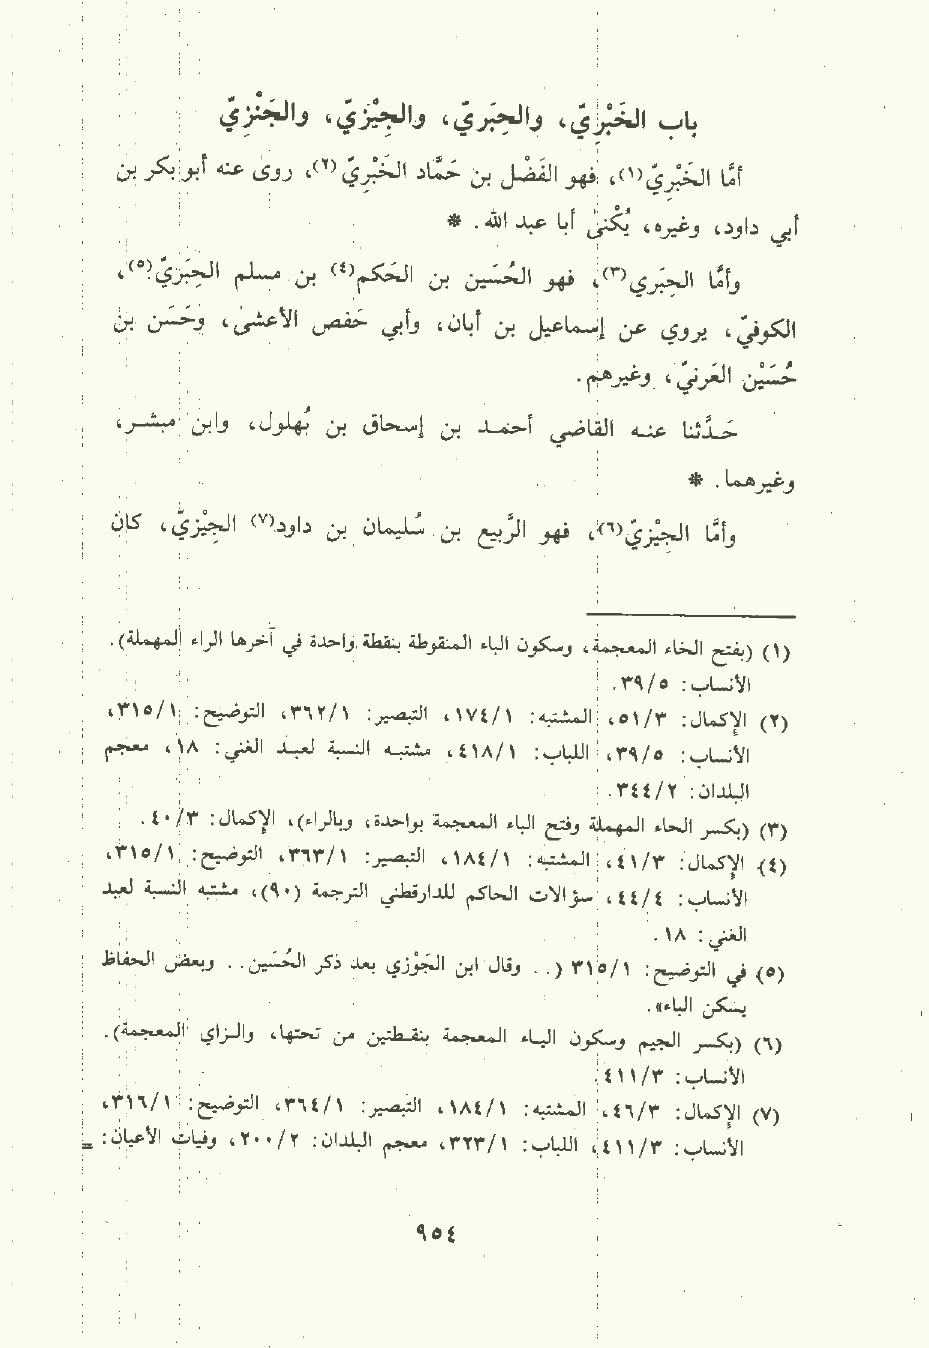 باب الخَبْرِيّ، والحِبَريّ، والجِيْزيّ، والجَنْزِيّ
أمَّا الخَبْرِيّ(١)، فهو الفَضْل بن حَمَّاد الخَبْرِيّ(٢)، روى عنه أبو بكر بن
أبي داود، وغيره، يُكْنى أبا عبد الله. *
وأمَّا الحِبَري(٣)، فهو الحُسَين بن الحَكم(٤) بن مسلم الحِبَريّ(٥)،
الكوفيّ، يروي عن إسماعيل بن أبان، وأبي حَفص الأعشى، وحَسَن بن
حُسَيْن العَرنيّ، وغيرهم.
حَـدَّثنا عنـه القاضي أحمـد بن إسحاق بن بُهلول، وابن مبشـر،
وغيرهما. *
وأمَّا الجِيْزيّ(٦)، فهو الرَّبيع بن سُليمان بن داود(٧) الجِيْزيّ، كان
(١) (بفتح الخاء المعجمة، وسكون الباء المنقوطة بنقطة واحدة في آخرها الراء المهملة).
الأنساب: ٣٩/٥.
(٢) الإكمال: ٥١/٣، المشتبه: ١٧٤/١، التبصير: ٣٦٢/١، التوضيح: ٣١٥/١،
الأنساب: ٣٩/٥، اللباب: ٤١٨/١، مشتبـه النسبة لعبـد الغني: ١٨، معجم
البلدان: ٣٤٤/٢.
(٣) (بكسر الحاء المهملة وفتح الباء المعجمة بواحدة، وبالراء)، الإكمال: ٤٠/٣.
(٤) الإكمال: ٤١/٣، المشتبه: ١٨٤/١، التبصير: ٣٦٣/١، التوضيح: ٣١٥/١،
الأنساب: ٤٤/٤، سؤالات الحاكم للدارقطني الترجمة (٩٠)، مشتبه النسبة لعبد
الغني: ١٨.
(٥) في التوضيح: ٣١٥/١ (.. وقال ابن الجَوْزي بعد ذكر الحُسَين.. وبعض الحفاظ
يسكن الباء».
(٦) (بكسر الجيم وسكون اليـاء المعجمة بنقـطتين من تحتها، والـزاي المعجمة).
الأنساب: ٤١١/٣.
(٧) الإكمال: ٤٦/٣، المشتبه: ١٨٤/١، التبصير: ٣٦٤/١، التوضيح: ٣١٦/١،
الأنساب: ٤١١/٣، اللباب: ٣٢٣/١، معجم البلدان: ٢٠٠/٢، وفيات الأعيان: =
٩٥٤